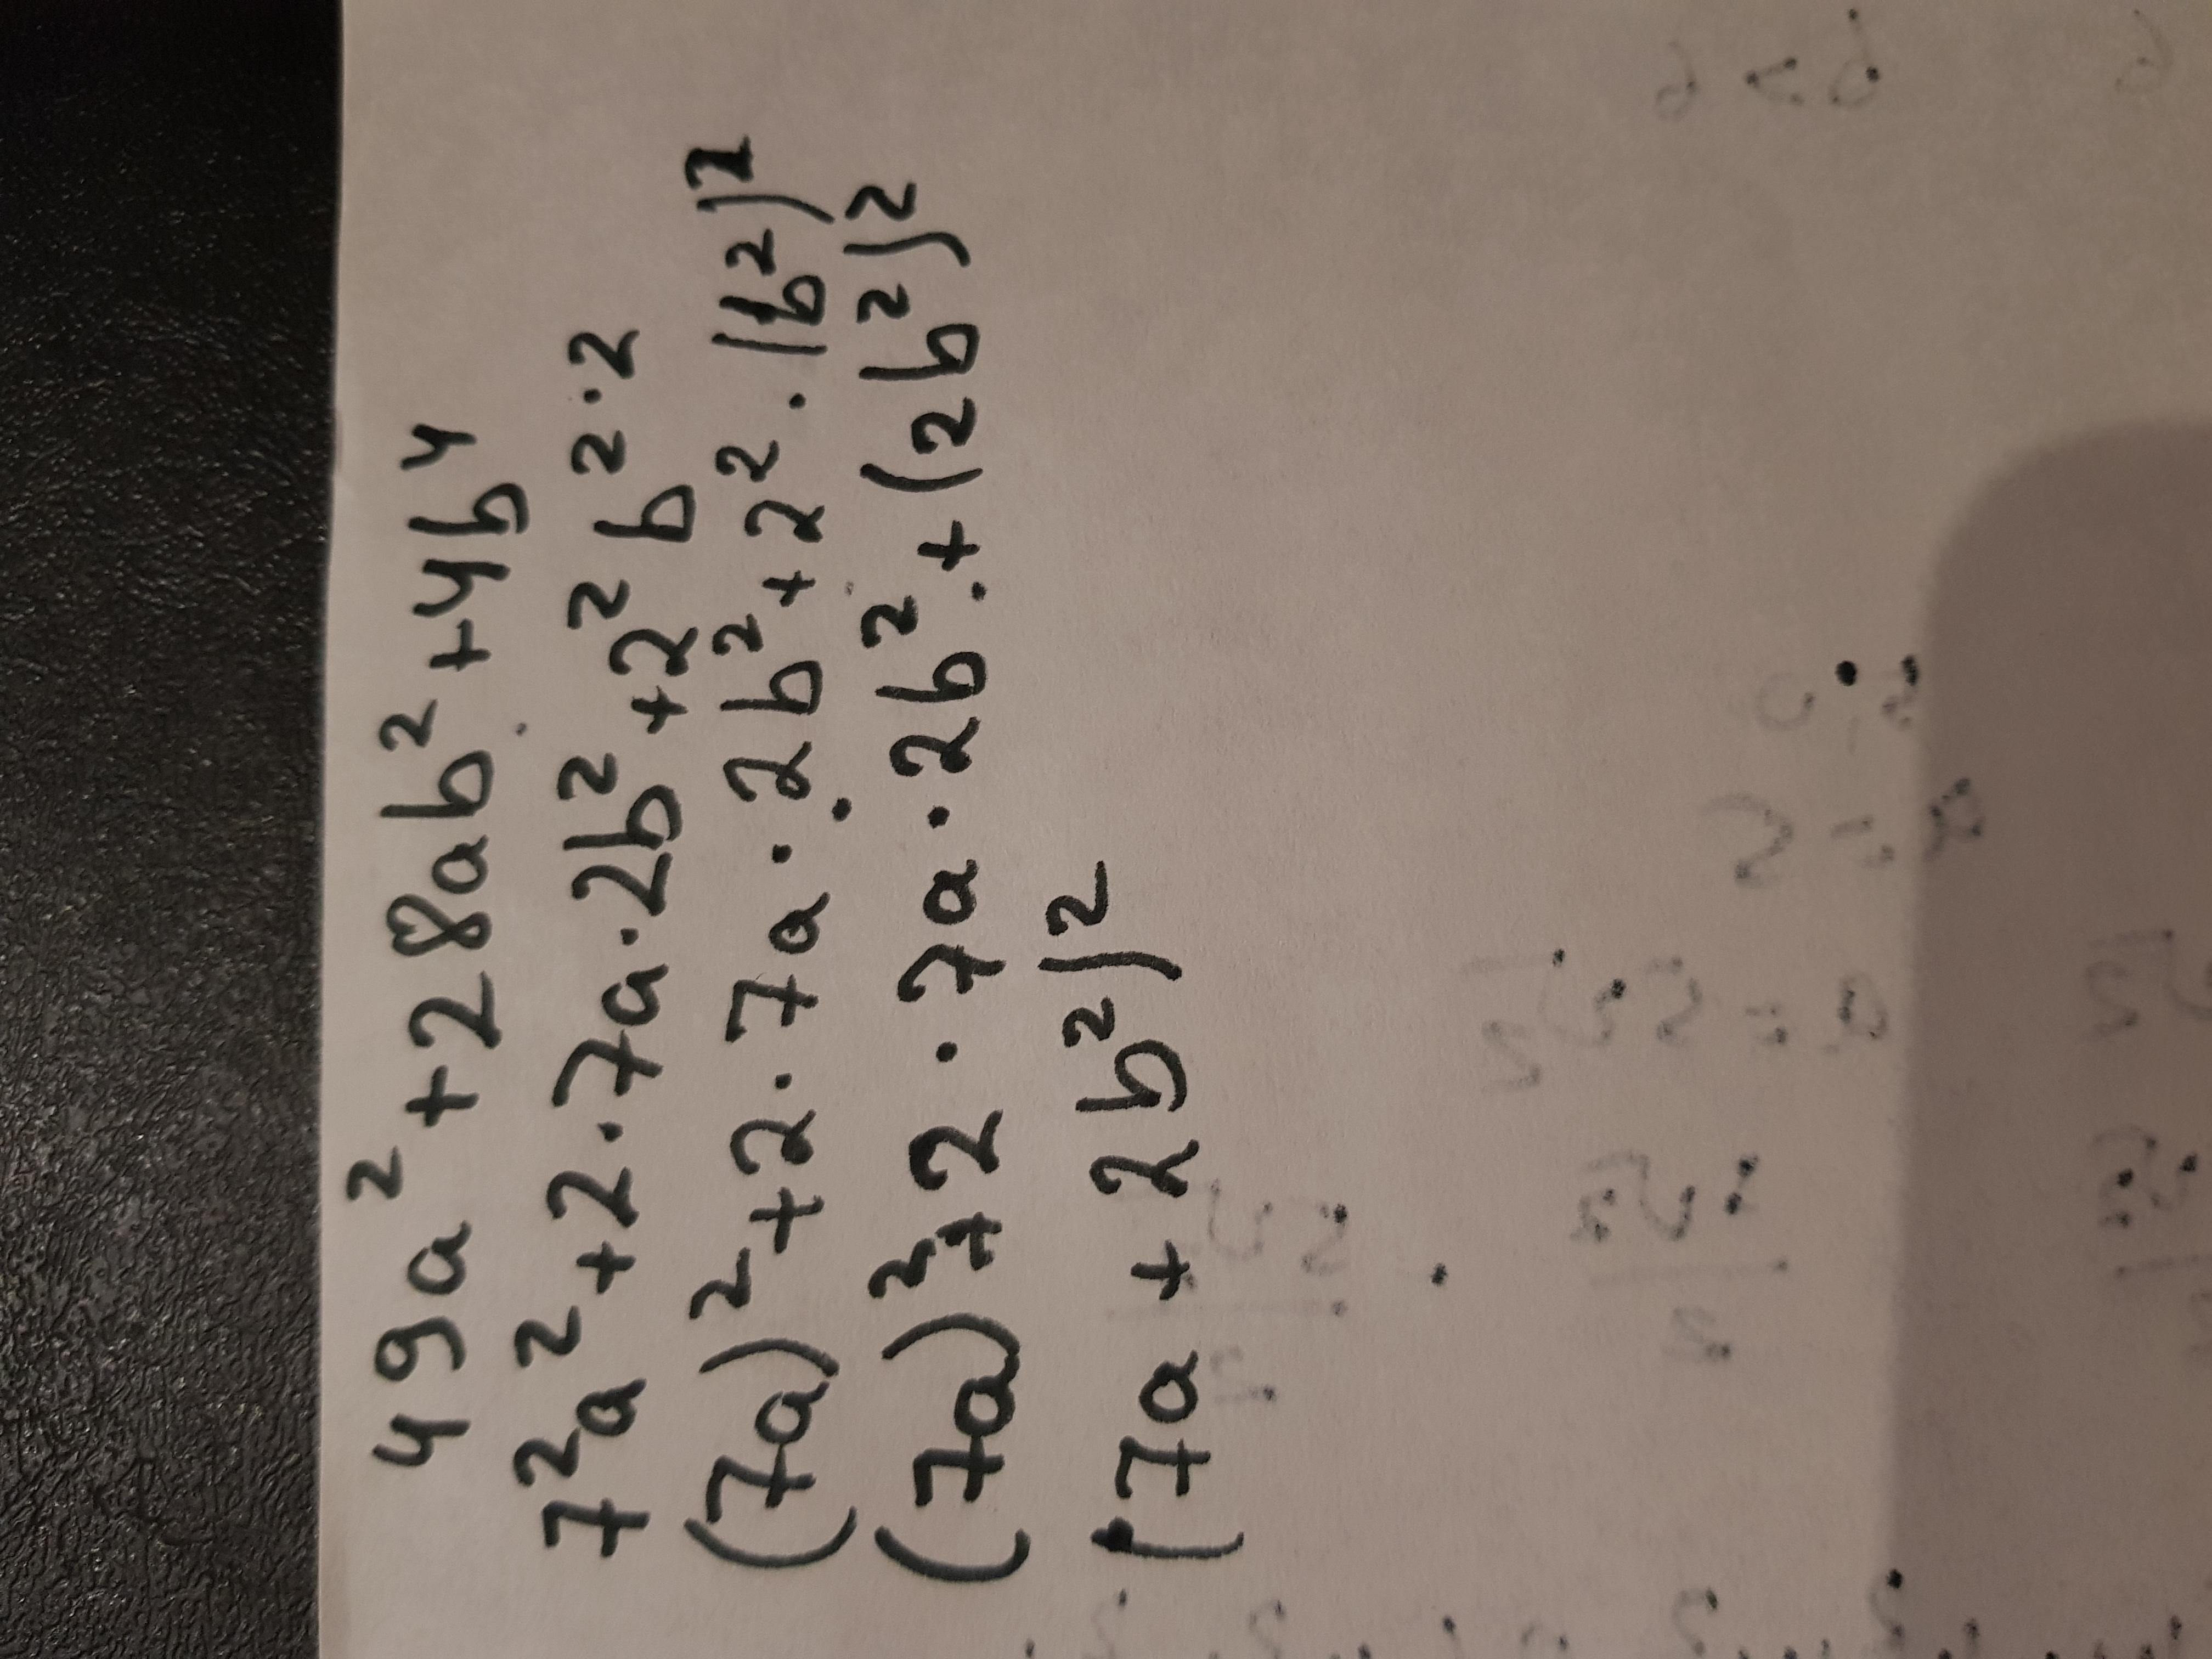 49a² + 28ab² + 4b⁴
7²a² + 2·7a·2b² + 2²b²·²
(7a)² + 2·7a·2b² + 2²·(b²)²
(7a)² + 2·7a·2b² + (2b²)²
(7a + 2b²)²